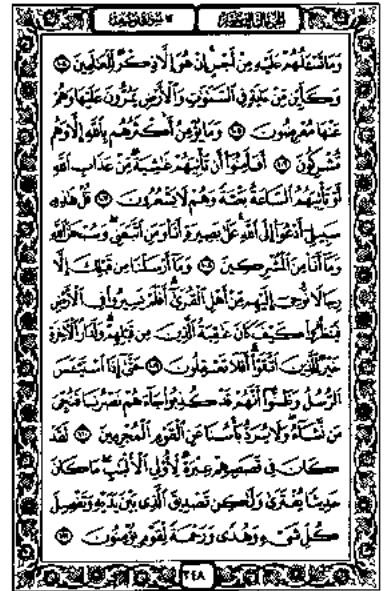 الجزء الثالث عشر
سورة يوسف
وَمَا تَسْـَٔلُهُمْ عَلَيْهِ مِنْ أَجْرٍ إِنْ هُوَ إِلَّا ذِكْرٌ لِّلْعَٰلَمِينَ ١٠٤
وَكَأَيِّن مِّنْ ءَايَةٍ فِي ٱلسَّمَٰوَٰتِ وَٱلْأَرْضِ يَمُرُّونَ عَلَيْهَا وَهُمْ
عَنْهَا مُعْرِضُونَ ١٠٥ وَمَا يُؤْمِنُ أَكْثَرُهُم بِٱللَّهِ إِلَّا وَهُم
مُّشْرِكُونَ ١٠٦ أَفَأَمِنُوٓا۟ أَن تَأْتِيَهُمْ غَٰشِيَةٌ مِّنْ عَذَابِ ٱللَّهِ
أَوْ تَأْتِيَهُمُ ٱلسَّاعَةُ بَغْتَةً وَهُمْ لَا يَشْعُرُونَ ١٠٧ قُلْ هَٰذِهِۦ
سَبِيلِىٓ أَدْعُوٓا۟ إِلَى ٱللَّهِ عَلَىٰ بَصِيرَةٍ أَنَا۠ وَمَنِ ٱتَّبَعَنِى وَسُبْحَٰنَ ٱللَّهِ
وَمَآ أَنَا۠ مِنَ ٱلْمُشْرِكِينَ ١٠٨ وَمَآ أَرْسَلْنَا مِن قَبْلِكَ إِلَّا
رِجَالًا نُّوحِىٓ إِلَيْهِم مِّنْ أَهْلِ ٱلْقُرَىٰٓ أَفَلَمْ يَسِيرُوا۟ فِى ٱلْأَرْضِ
فَيَنظُرُوا۟ كَيْفَ كَانَ عَٰقِبَةُ ٱلَّذِينَ مِن قَبْلِهِمْ وَلَدَارُ ٱلْءَاخِرَةِ
خَيْرٌ لِّلَّذِينَ ٱتَّقَوْا۟ أَفَلَا تَعْقِلُونَ ١٠٩ حَتَّىٰٓ إِذَا ٱسْتَيْـَٔسَ
ٱلرُّسُلُ وَظَنُّوٓا۟ أَنَّهُمْ قَدْ كُذِبُوا۟ جَآءَهُمْ نَصْرُنَا فَنُجِّىَ
مَن نَّشَآءُ وَلَا يُرَدُّ بَأْسُنَا عَنِ ٱلْقَوْمِ ٱلْمُجْرِمِينَ ١١٠ لَقَدْ
كَانَ فِى قَصَصِهِمْ عِبْرَةٌ لِّأُو۟لِى ٱلْأَلْبَٰبِ مَا كَانَ
حَدِيثًا يُفْتَرَىٰ وَلَٰكِن تَصْدِيقَ ٱلَّذِى بَيْنَ يَدَيْهِ وَتَفْصِيلَ
كُلِّ شَىْءٍ وَهُدًى وَرَحْمَةً لِّقَوْمٍ يُؤْمِنُونَ ١١١
٢٤٨